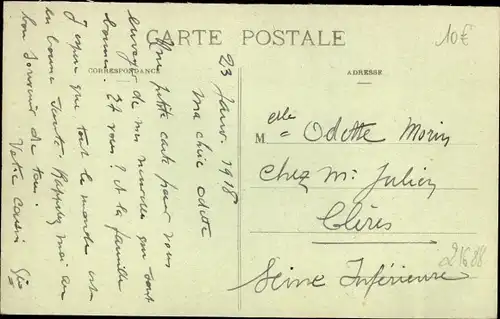 CARTE POSTALE
10€
CORRESPONDANCE
ADRESSE
23 Janv. 1918
Ma chère Odette
Une petite carte pour vous
envoyer de mes nouvelles qui sont
bonnes. Et vous ? et la famille
J'espère que tout le monde est
en bonne santé. Rappelez moi au
bon souvenir de tous.
Votre cousin
Melle Odette Morin
Chez Mr Julien
Clères
Seine Inférieure
21688